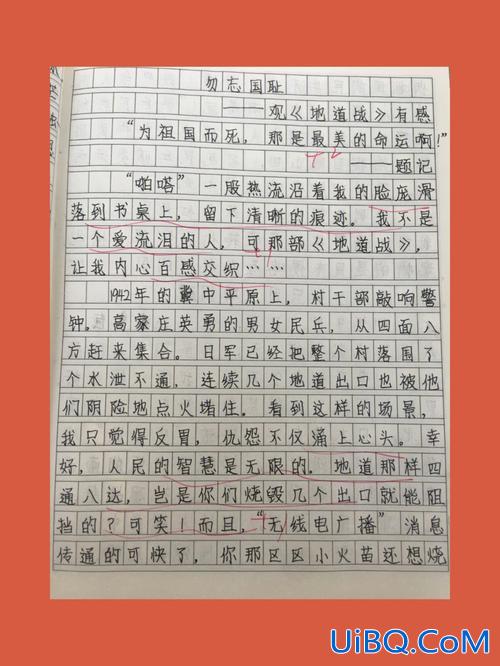 勿忘国耻
——观《地道战》有感
“为祖国而死，那是最美的命运啊！”
——题记
“啪嗒”一股热流沿着我的脸庞滑
落到书桌上，留下清晰的痕迹。我不是
一个爱流泪的人，可那部《地道战》，
让我内心百感交织……
1942年的冀中平原上，村干部敲响警
钟。高家庄英勇的男女民兵，从四面八
方赶来集合。日军已经把整个村落围了
个水泄不通，连续几个地道出口也被他
们阴险地点火堵住。看到这样的场景，
我只觉得反胃，仇怨不仅涌上心头。幸
好，人民的智慧是无限的。地道那样四
通八达，岂是你们烧毁几个出口就能阻
挡的？可笑！而且，“无线电广播”消息
传通的可快了，你那区区小火苗还想烧
UiBQ.CoM